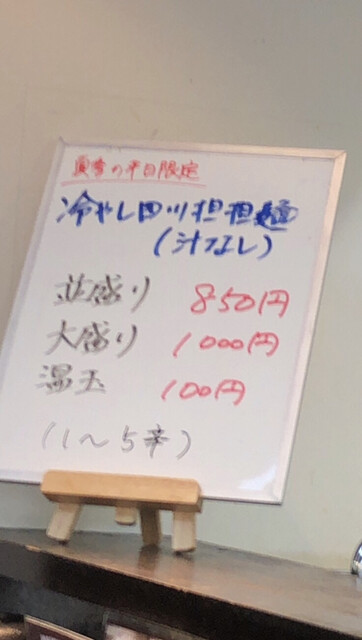 夏季の平日限定
冷やし四川担担麺
(汁なし)
並盛り 850円
大盛り 1000円
温玉 100円
(1〜5辛)